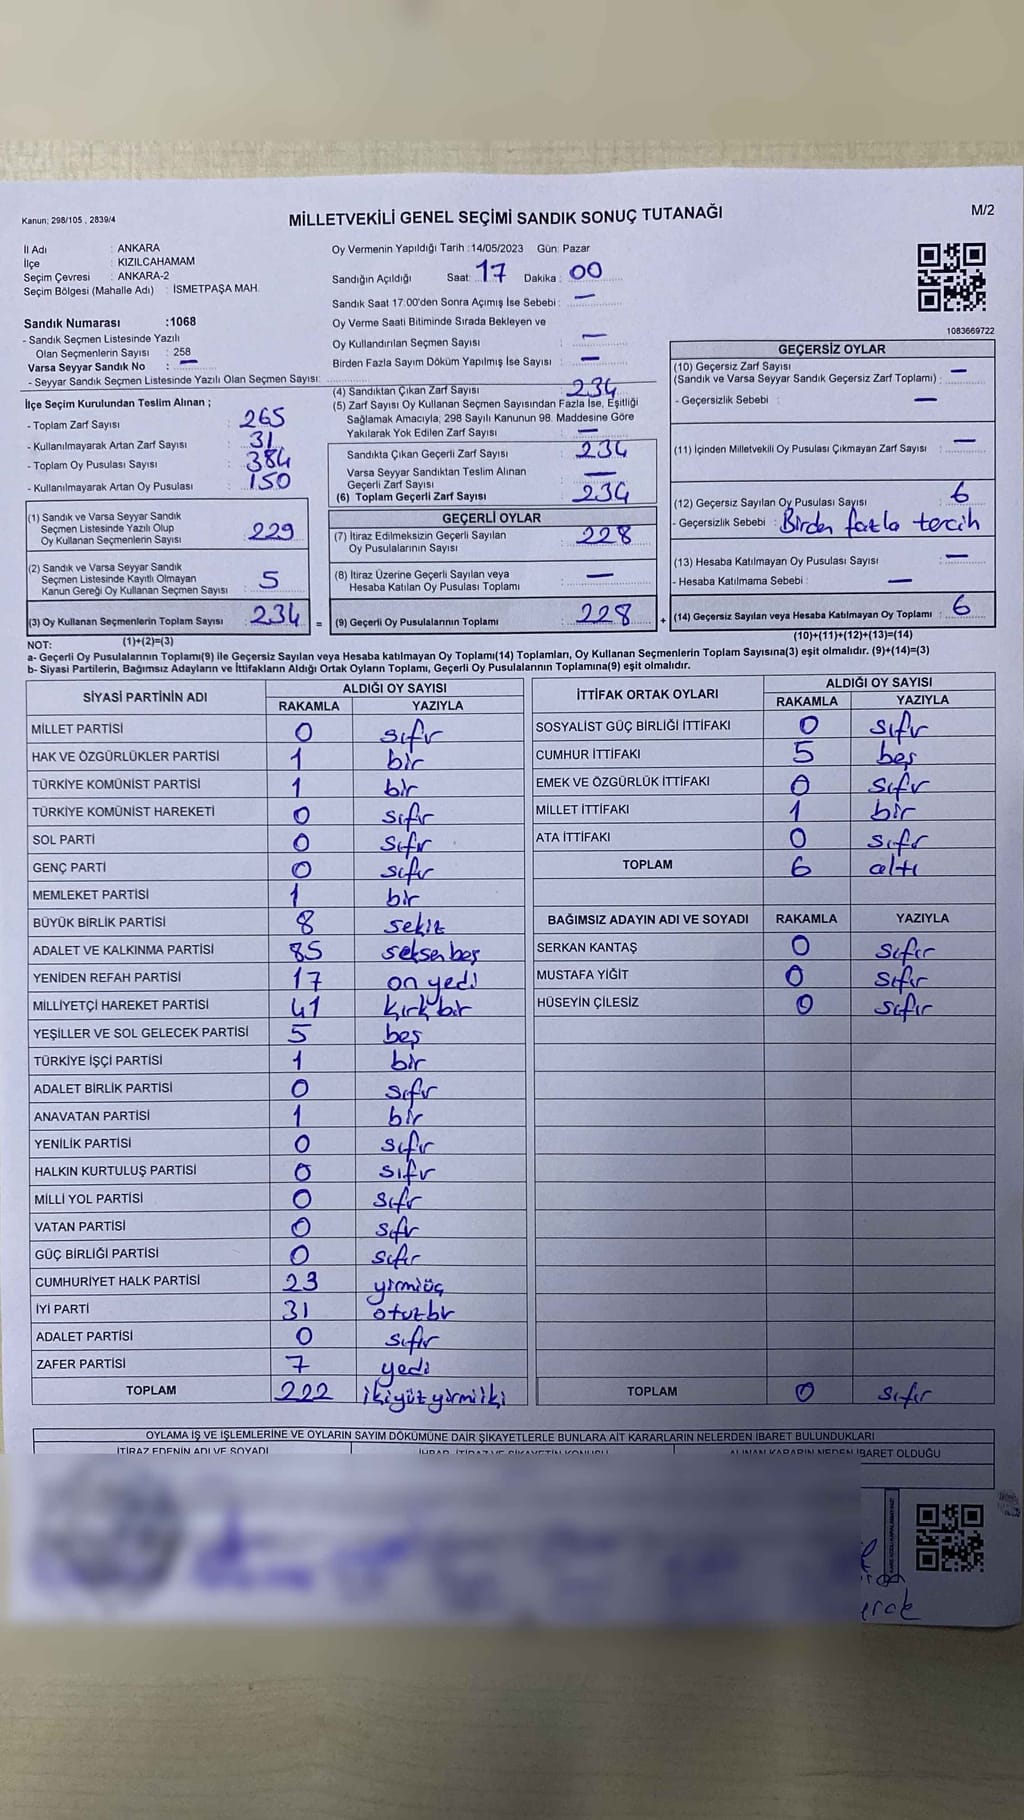 Kanun; 298/105 , 2839/4
MİLLETVEKİLİ GENEL SEÇİMİ SANDIK SONUÇ TUTANAĞI
M/2
İl Adı : ANKARA
İlçe : KIZILCAHAMAM
Seçim Çevresi : ANKARA-2
Seçim Bölgesi (Mahalle Adı) : İSMETPAŞA MAH.
Sandık Numarası :1068
- Sandık Seçmen Listesinde Yazılı
Olan Seçmenlerin Sayısı : 258
Varsa Seyyar Sandık No : —
- Seyyar Sandık Seçmen Listesinde Yazılı Olan Seçmen Sayısı:
İlçe Seçim Kurulundan Teslim Alınan ;
- Toplam Zarf Sayısı : 265
- Kullanılmayarak Artan Zarf Sayısı : 31
- Toplam Oy Pusulası Sayısı : 384
- Kullanılmayarak Artan Oy Pusulası : 150
(1) Sandık ve Varsa Seyyar Sandık
Seçmen Listesinde Yazılı Olup
Oy Kullanan Seçmenlerin Sayısı : 229
(2) Sandık ve Varsa Seyyar Sandık
Seçmen Listesinde Kayıtlı Olmayan
Kanun Gereği Oy Kullanan Seçmen Sayısı : 5
(3) Oy Kullanan Seçmenlerin Toplam Sayısı : 234 =
(1)+(2)=(3)
Oy Vermenin Yapıldığı Tarih :14/05/2023 Gün: Pazar
Sandığın Açıldığı Saat: 17 Dakika : 00
Sandık Saat 17:00'den Sonra Açımış İse Sebebi : —
Oy Verme Saati Bitiminde Sırada Bekleyen ve
Oy Kullandırılan Seçmen Sayısı : —
Birden Fazla Sayım Döküm Yapılmış İse Sayısı : —
(4) Sandıktan Çıkan Zarf Sayısı : 234
(5) Zarf Sayısı Oy Kullanan Seçmen Sayısından Fazla İse, Eşitliği
Sağlamak Amacıyla, 298 Sayılı Kanunun 98. Maddesine Göre
Yakılarak Yok Edilen Zarf Sayısı : —
Sandıkta Çıkan Geçerli Zarf Sayısı : 234
Varsa Seyyar Sandıktan Teslim Alınan
Geçerli Zarf Sayısı : —
(6) Toplam Geçerli Zarf Sayısı : 234
GEÇERLİ OYLAR
(7) İtiraz Edilmeksizin Geçerli Sayılan
Oy Pusulalarının Sayısı : 228
(8) İtiraz Üzerine Geçerli Sayılan veya
Hesaba Katılan Oy Pusulası Toplamı : —
(9) Geçerli Oy Pusulalarının Toplamı : 228 +
1083669722
GEÇERSİZ OYLAR
(10) Geçersiz Zarf Sayısı
(Sandık ve Varsa Seyyar Sandık Geçersiz Zarf Toplamı) : —
- Geçersizlik Sebebi : —
(11) İçinden Milletvekili Oy Pusulası Çıkmayan Zarf Sayısı : —
(12) Geçersiz Sayılan Oy Pusulası Sayısı : 6
- Geçersizlik Sebebi : Birden fazla tercih
(13) Hesaba Katılmayan Oy Pusulası Sayısı : —
- Hesaba Katılmama Sebebi : —
(14) Geçersiz Sayılan veya Hesaba Katılmayan Oy Toplamı : 6
(10)+(11)+(12)+(13)=(14)
NOT:
a- Geçerli Oy Pusulalarının Toplamı(9) ile Geçersiz Sayılan veya Hesaba katılmayan Oy Toplamı(14) Toplamları, Oy Kullanan Seçmenlerin Toplam Sayısına(3) eşit olmalıdır. (9)+(14)=(3)
b- Siyasi Partilerin, Bağımsız Adayların ve İttifakların Aldığı Ortak Oyların Toplamı, Geçerli Oy Pusulalarının Toplamına(9) eşit olmalıdır.
SİYASİ PARTİNİN ADI ALDIĞI OY SAYISI
RAKAMLA YAZIYLA
MİLLET PARTİSİ 0 sıfır
HAK VE ÖZGÜRLÜKLER PARTİSİ 1 bir
TÜRKİYE KOMÜNİST PARTİSİ 1 bir
TÜRKİYE KOMÜNİST HAREKETİ 0 sıfır
SOL PARTİ 0 sıfır
GENÇ PARTİ 0 sıfır
MEMLEKET PARTİSİ 1 bir
BÜYÜK BİRLİK PARTİSİ 8 sekiz
ADALET VE KALKINMA PARTİSİ 85 seksenbeş
YENİDEN REFAH PARTİSİ 17 on yedi
MİLLİYETÇİ HAREKET PARTİSİ 41 kırk bir
YEŞİLLER VE SOL GELECEK PARTİSİ 5 beş
TÜRKİYE İŞÇİ PARTİSİ 1 bir
ADALET BİRLİK PARTİSİ 0 sıfır
ANAVATAN PARTİSİ 1 bir
YENİLİK PARTİSİ 0 sıfır
HALKIN KURTULUŞ PARTİSİ 0 sıfır
MİLLİ YOL PARTİSİ 0 sıfır
VATAN PARTİSİ 0 sıfır
GÜÇ BİRLİĞİ PARTİSİ 0 sıfır
CUMHURİYET HALK PARTİSİ 23 yirmiüç
İYİ PARTİ 31 otuzbir
ADALET PARTİSİ 0 sıfır
ZAFER PARTİSİ 7 yedi
TOPLAM 222 ikiyüzyirmiiki
İTTİFAK ORTAK OYLARI ALDIĞI OY SAYISI
RAKAMLA YAZIYLA
SOSYALİST GÜÇ BİRLİĞİ İTTİFAKI 0 sıfır
CUMHUR İTTİFAKI 5 beş
EMEK VE ÖZGÜRLÜK İTTİFAKI 0 sıfır
MİLLET İTTİFAKI 1 bir
ATA İTTİFAKI 0 sıfır
TOPLAM 6 altı
BAĞIMSIZ ADAYIN ADI VE SOYADI RAKAMLA YAZIYLA
SERKAN KANTAŞ 0 sıfır
MUSTAFA YİĞİT 0 sıfır
HÜSEYİN ÇİLESİZ 0 sıfır
TOPLAM 0 sıfır
OYLAMA İŞ VE İŞLEMLERİNE VE OYLARIN SAYIM DÖKÜMÜNE DAİR ŞİKAYETLERLE BUNLARA AİT KARARLARIN NELERDEN İBARET BULUNDUKLARI
İTİRAZ EDENİN ADI VE SOYADI İHBAR, İTİRAZ VE ŞİKAYETİN KONUSU ALINAN KARARIN NEDEN İBARET OLDUĞU